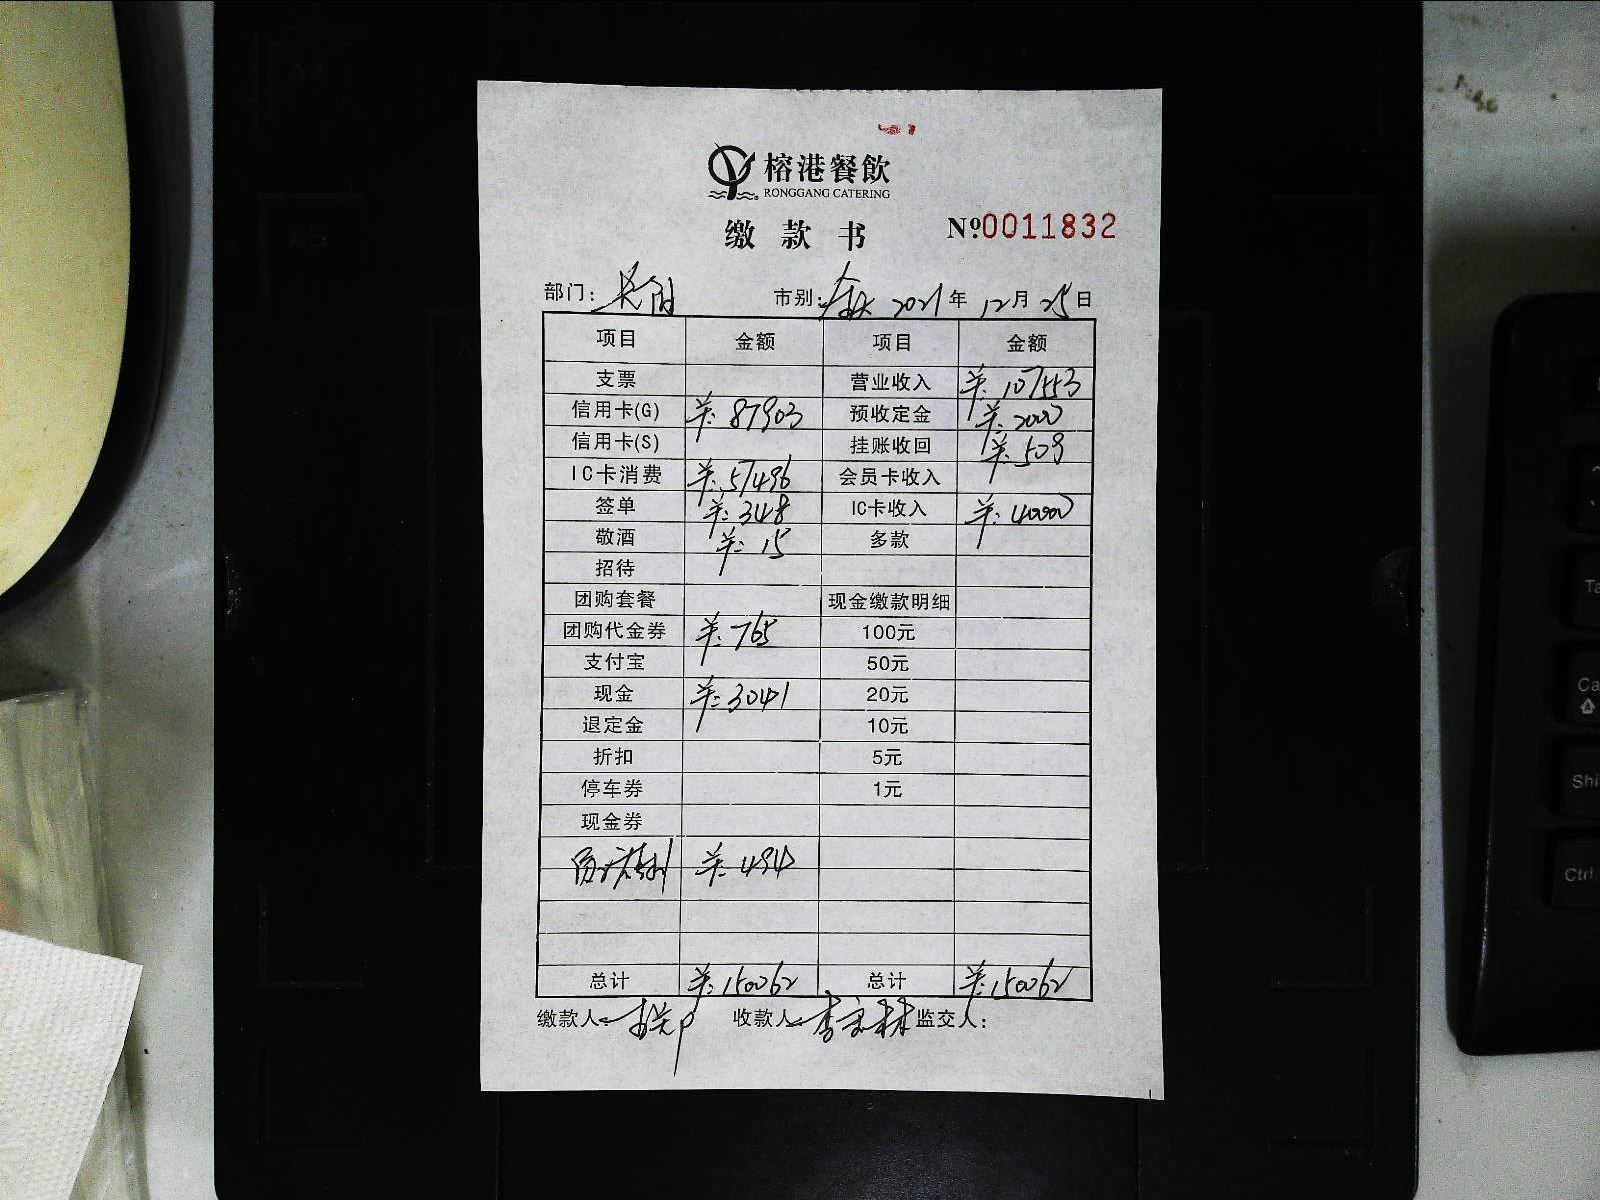 榕港餐飲
RONGGANG CATERING
缴款书 Nº0011832
部门: 市别:全天 2021年12月25日
项目 金额 项目 金额
支票 营业收入 ¥:107553
信用卡(G) ¥:87903 预收定金 ¥:2000
信用卡(S) 挂账收回 ¥:509
IC卡消费 ¥:57496 会员卡收入
签单 ¥:348 IC卡收入 ¥:40000
敬酒 ¥:15 多款
招待
团购套餐 现金缴款明细
团购代金券 ¥:765 100元
支付宝 50元
现金 ¥:3041 20元
退定金 10元
折扣 5元
停车券 1元
现金券
¥:494
总计 ¥:150062 总计 ¥:150062
缴款人: 收款人: 监交人:
Shi
Ctrl